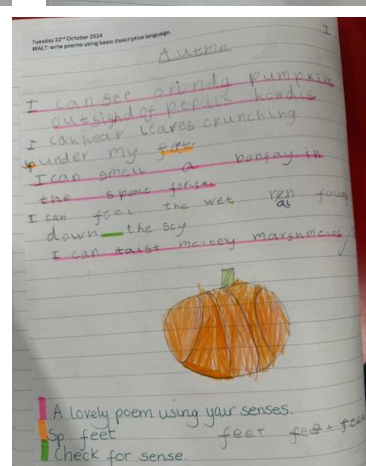 Tuesday 22nd October 2024
WALT: write poems using basic descriptive language.
1
Autmn
I can see orindg pumpkins
outsighd of pepals howdis
I can hear leaves crunching
sp under my fet.
I can smell a bonfay in
the spooct forist
I can feel the wet ren ai foull
down the scy
I can taist meltey marshmelos
A lovely poem using your senses.
Sp feet
feet feet feet
Check for sense.